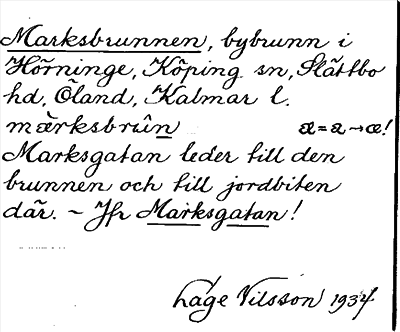 Marksbrunnen, bybrunn i
Hörninge, Köping sn, Slättbo
hd, Öland, Kalmar l.
mærksbrûn æ=a→æ!
Marksgatan leder till den
brunnen och till jordbiten
där. – Jfr Marksgatan!
Låge Nilsson 1934